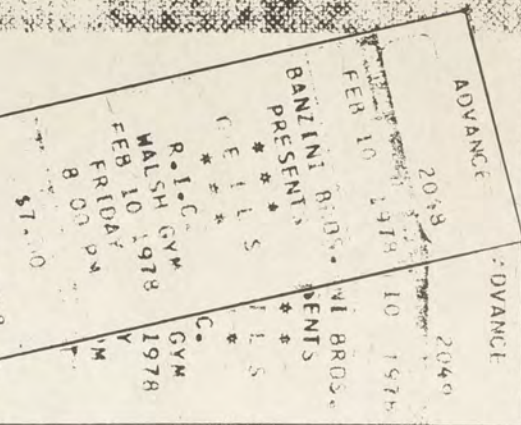 ADVANCE
FEB 10 1978
BANZINI BROS.
PRESENTS
* * *
* * *
R.I.C.
WALSH GYM
FEB 10 1978
FRIDAY
8 00 PM
ADVANCE
2049
10 1978
NI BROS.
ENTS
* *
ILS
*
C.
GYM
1978
Y
PM